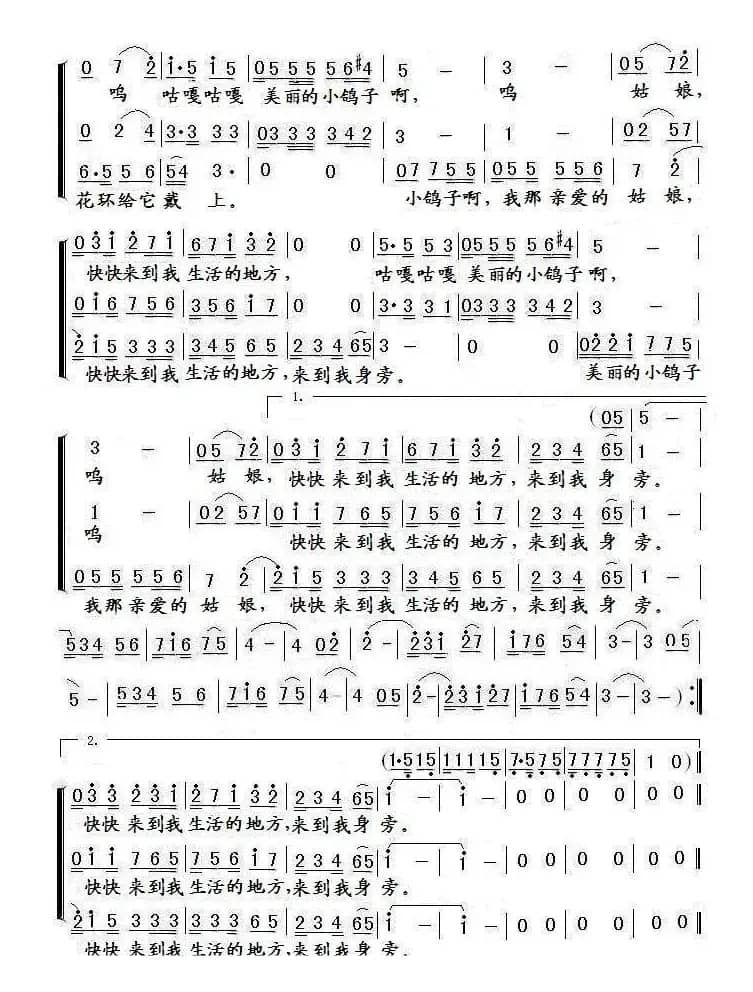 0 7 2̇ | 1̇·5 1̇ 5 | 05 5 5 5 6 #4 | 5 － | 3 － | 05 72̇ |
呜 咕嘎咕嘎 美丽的小鸽子 啊, 呜 姑 娘,
0 2 4 | 3·3 3 3 | 033 3 3 4 2 | 3 － | 1 － | 02 57 |
6·5 5 6 | 54 3· | 0 0 | 07 7 5 5 | 05 5 5 5 6 | 7 2̇ |
花环给它 戴 上。 小鸽子啊, 我那 亲爱的 姑 娘,
03̇1̇ 2̇ 7 1̇ | 6 7 1̇ 3̇ 2̇ | 0 0 | 5·5 5 3 | 05 5 5 5 6 #4 | 5 － |
快快来到我 生活的地方, 咕嘎咕嘎 美丽的小鸽子啊,
01̇6 7 5 6 | 3 5 6 1̇ 7 | 0 0 | 3·3 3 1 | 033 3 3 4 2 | 3 － |
2̇ 1̇ 5 3 3 3 | 3 4 5 6 5 | 2 3 4 65 | 3 － | 0 0 | 02̇2̇1̇ 7 7 5 |
快快来到我 生活的地方, 来到我身旁。 美丽的小鸽子
1.
(05 | 5 －
3 － | 05 72̇ | 03̇1̇ 2̇ 7 1̇ | 6 7 1̇ 3̇ 2̇ | 2 3 4 65 | 1 － |
呜 姑 娘, 快快 来 到我 生活的 地方, 来到我 身 旁。
1 － | 02 57 | 01̇1̇ 7 6 5 | 7 5 6 1̇ 7 | 2 3 4 65 | 1 － |
呜 快快 来 到我 生活的 地方, 来到我 身 旁。
05 5 5 5 6 | 7 2̇ | 2̇ 1̇ 5 3 3 3 | 3 4 5 6 5 | 2 3 4 65 | 1 － |
我那亲爱的 姑 娘, 快快 来 到我 生活的 地方, 来到我 身 旁。
534 56 | 71̇6 75 | 4－ | 4 02̇ | 2̇－ | 2̇3̇1̇ 2̇7 | 1̇76 54 | 3－ | 3 05 |
5－ | 534 5 6 | 71̇6 75 | 4－ | 4 05 | 2̇－ | 2̇3̇1̇2̇7 | 1̇7654 | 3－ | 3－) :‖
2.
(1·515 | 11115 | 7·575 | 77775 | 1 0) ‖
03̇3̇ 2̇ 3̇ 1̇ | 2̇ 7 1̇ 3̇ 2̇ | 2 3 4 65 | 1̇ － | 1̇ － | 0 0 | 0 0 | 0 0 ‖
快快 来到我 生活的地方, 来到我身 旁。
01̇1̇ 7 6 5 | 7 5 6 1̇ 7 | 2 3 4 65 | 1̇ － | 1̇ － | 0 0 | 0 0 | 0 0 ‖
快快 来到我 生活的地方, 来到我身 旁。
2̇1̇5 3 3 3 | 3 3 3 6 5 | 2 3 4 65 | 1̇ － | 1̇ － | 0 0 | 0 0 | 0 0 ‖
快快 来到我 生活的地方, 来到我身 旁。